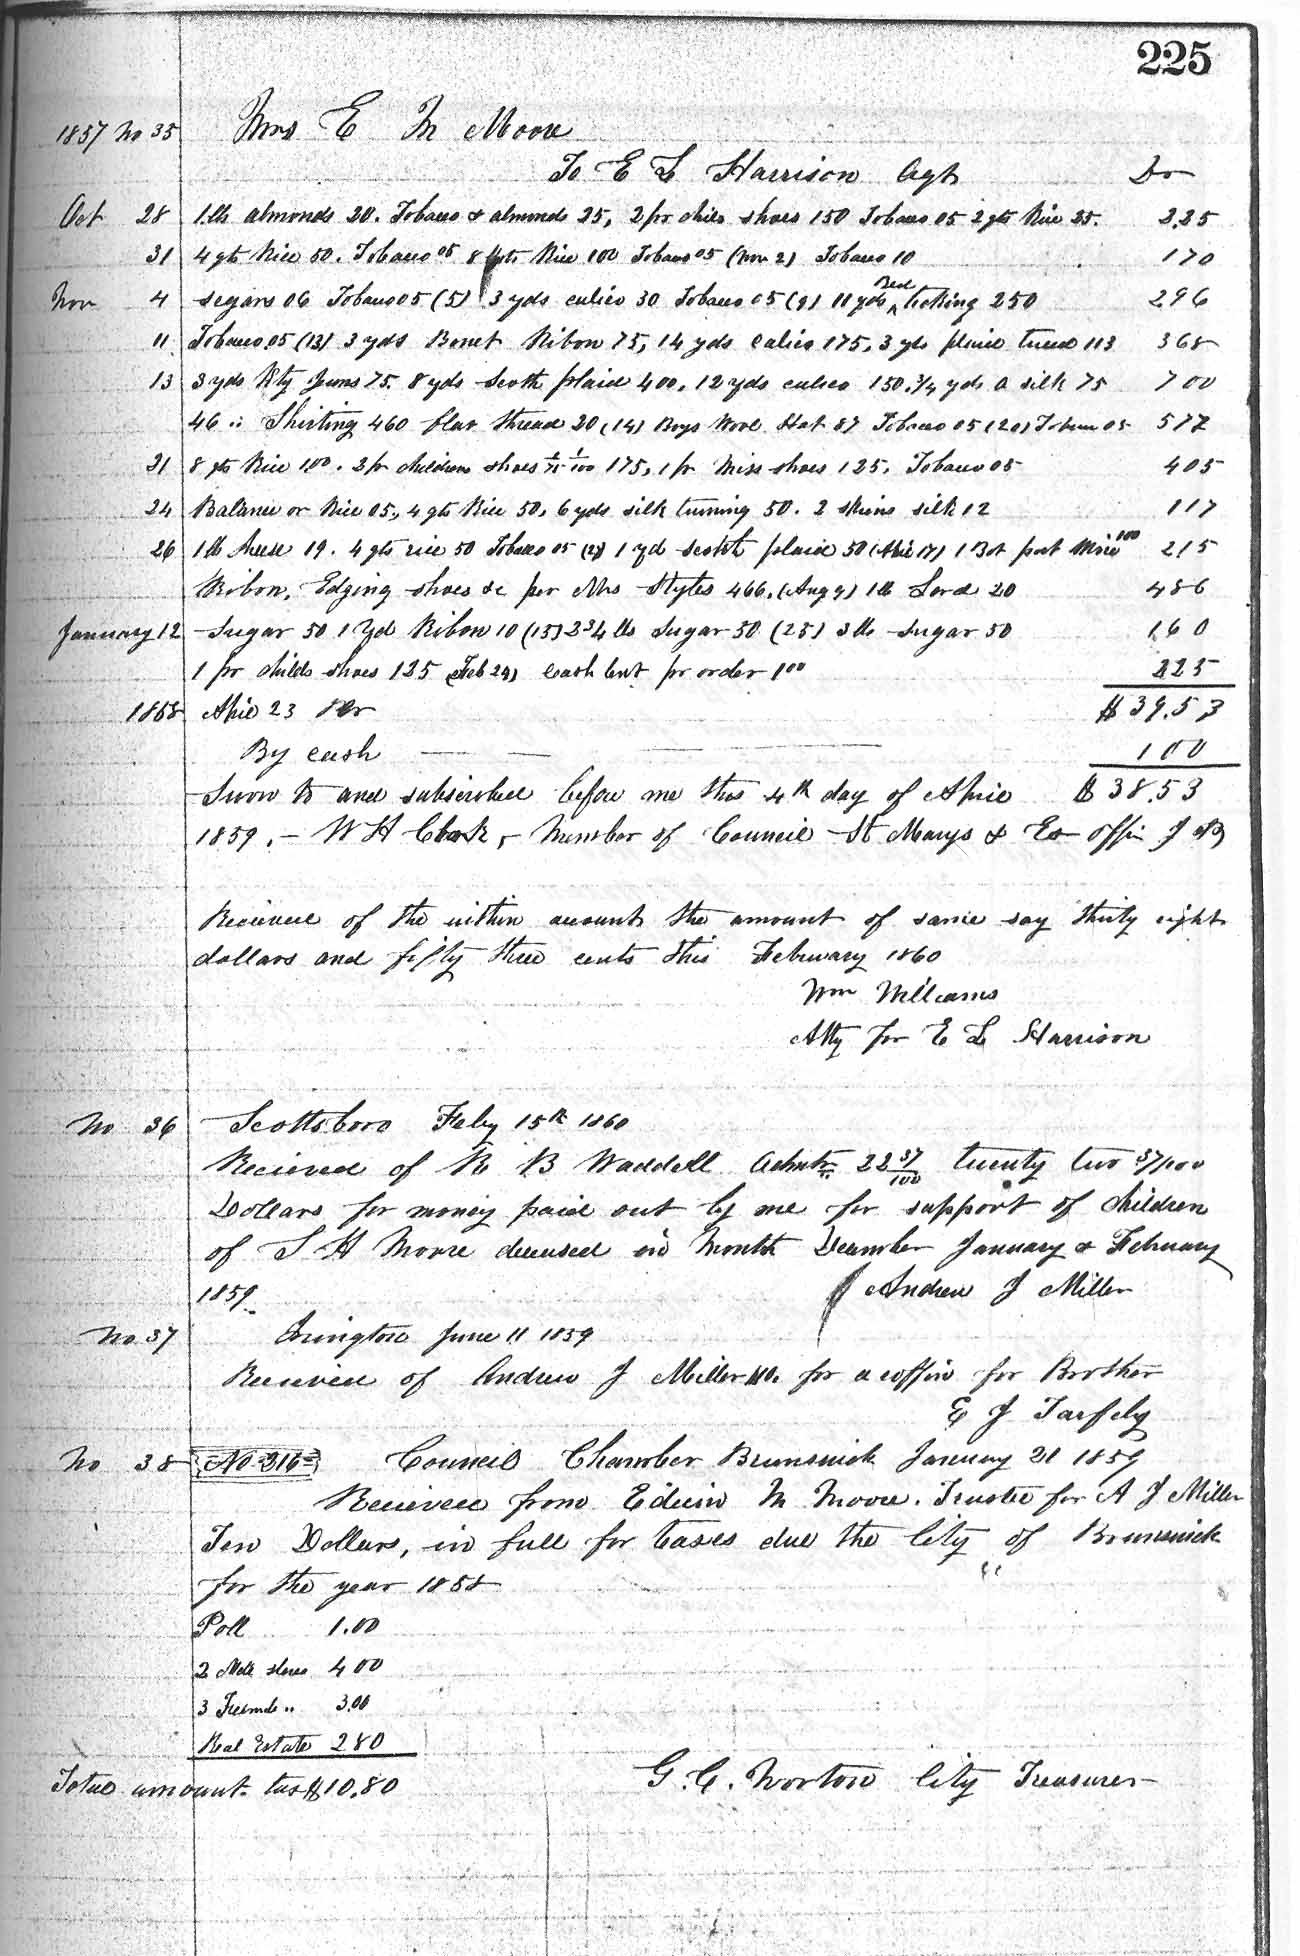 225
1857 No 35 Mrs E M Moore
To E L Harrison Agt Dr
Oct 28 1 lb almonds 20. Tobacco & almonds 25, 2 pr chils shoes 150 Tobacco 05 2 qts Rice 25. 2.25
31 4 qts Rice 50. Tobacco 05 8 qts Rice 100 Tobacco 05 (Nov 2) Tobacco 10 170
Nov 4 segars 06 Tobacco 05 (5) 3 yds calico 30 Tobacco 05 (9) 11 yds Bed ticking 250 296
11 Tobacco 05 (13) 3 yds Bonet Ribon 75, 14 yds calico 175, 3 yds plaid 113 368
13 3 yds Kty Jeans 75. 8 yds Scoth plaid 400, 12 yds calico 150. 3/4 yds silk 75 700
46 " Shirting 460 flax thread 20 (14) Boys Wool Hat 87 Tobacco 05 (20) Tobacco 05 577
21 8 qts Rice 100. 2 pr children shoes 1/75 1/100 175, 1 pr Miss shoes 125. Tobacco 05 405
24 Balance or Rice 05, 4 qts Rice 50, 6 yds silk triming 50. 2 skins silk 12 117
26 1 lb cheese 19. 4 qts rice 50 Tobacco 05 1 yd scotch plaid 50 1 Bot port Wine 100 215
Ribon, Edging shoes &c per Mrs Styles 466. (Aug 9) 1 lb Lard 20 486
January 12 Sugar 50 1 Yd Ribon 10 (15) 2 3/4 lbs Sugar 50 (25) 3 lb sugar 50 1.60
1 pr childs shoes 125 (Feb 24) cash lent pr order 1 00 225
1858 Apie 23 Cr $39.53
By cash 100
Sworn to and subscribed before me this 4th day of Apric $38.53
1859. – W H Clark, Member of Council St Marys & Ex offi J P
Recieved of the within account the amount of same say thirty eight
dollars and fifty three cents this February 1860
Wm Williams
Atty for E L Harrison
No 36 Scottsboro Feby 15th 1860
Recieved of R B Waddell Admtr 22 37/100 twenty two 37/100
Dollars for money paid out by me for support of children
of S H Moore deceased in Month December January & February
1859. Andrew J Miller
No. 37 Irvington June 11 1859
Recieved of Andrew J Miller $10. for a coffin for Brother
E J Tarfely
No 38 No 216 Council Chamber Brunswick January 21 1859
Recieved from Edwin M Moore. Trustee for A J Miller
Ten Dollars, in full for taxes due the City of Brunswick
for the year 1858
Poll 1.00
2 Male slaves 4 00
3 Female " 3.00
Real Estate 2 80
Total amount tax $10.80 G. C. Norton City Treasurer